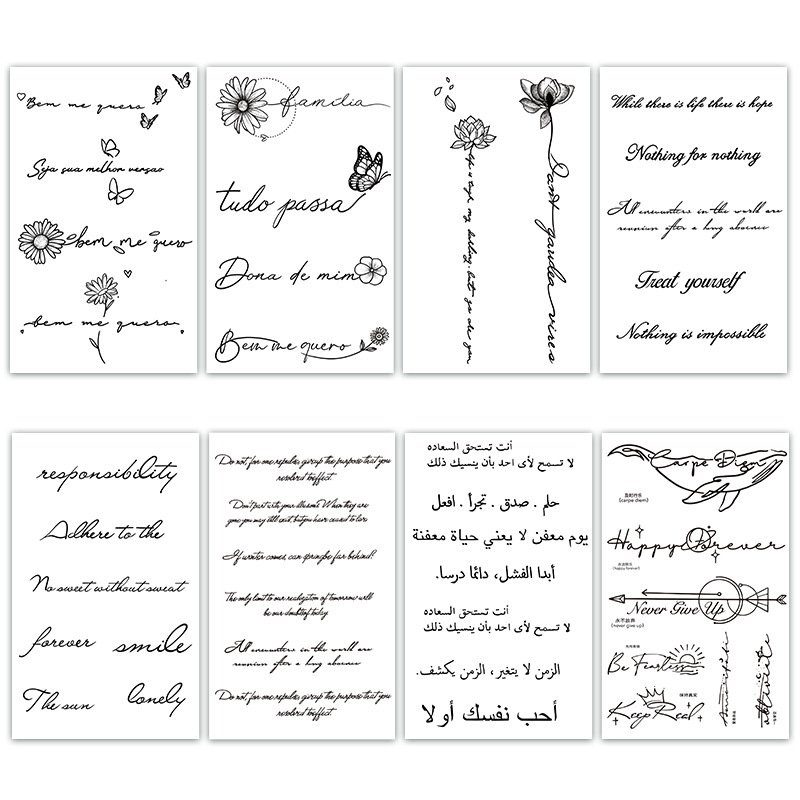 Bem me quero
Seja sua melhor versao
bem me quero
bem me quero
família
tudo passa
Dona de mim
Bem me quero
life is tough my darling, but so are you
Damt gaudea vires
While there is life there is hope
Nothing for nothing
All encounters in the world are
reunion after a long absence
Treat yourself
Nothing is impossible
responsibility
Adhere to the
No sweet without sweat
forever smile
The sun lonely
Do not, for one repulse, give up the purpose that you
resolved to effect.
Don't part with your illusions. When they are
gone you may still exist, but you have ceased to live
If winter comes, can spring be far behind?
The only limit to our realization of tomorrow will
be our doubts of today
All encounters in the world are
reunion after a long absence
Do not, for one repulse, give up the purpose that you
resolved to effect.
أنت تستحق السعاده
لا تسمح لأى احد بأن ينسيك ذلك
حلم . صدق . تجرأ . افعل
يوم معفن لا يعني حياة معفنة
أبدا الفشل، دائما درسا.
أنت تستحق السعاده
لا تسمح لأى احد بأن ينسيك ذلك
الزمن لا يتغير ، الزمن يكشف.
أحب نفسك أولا
Carpe Diem
及时行乐
(carpe diem)
Happy Forever
永远快乐
(happy forever)
Never Give Up
永不放弃
(never give up)
Be Fearless
Keep Real
保持真实